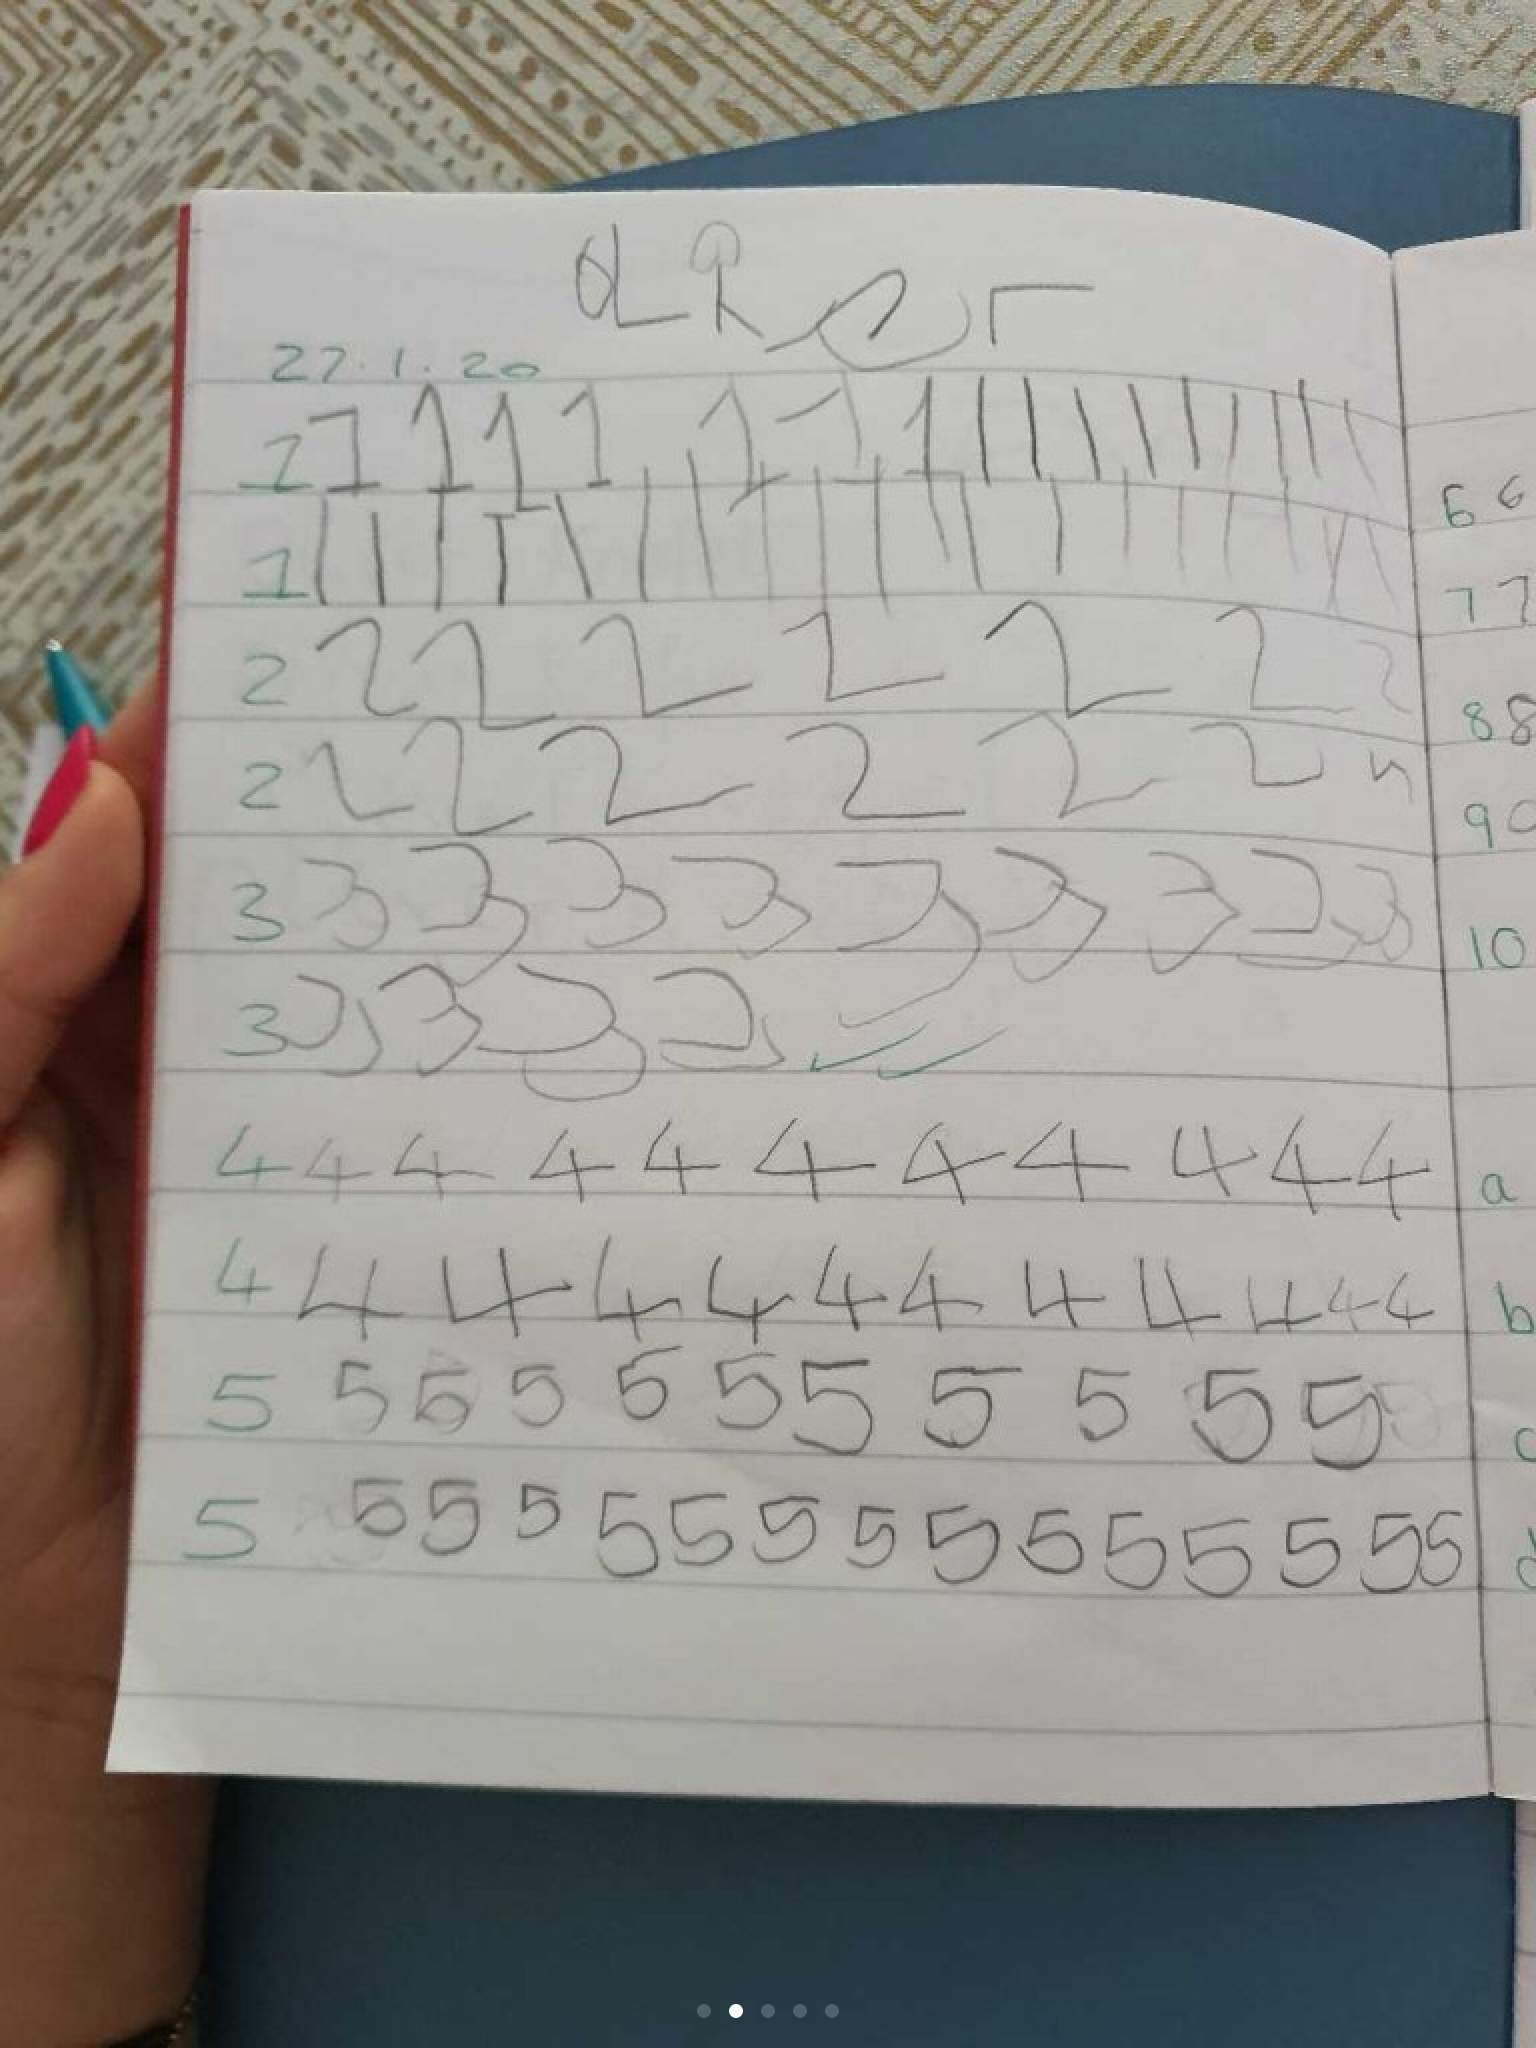 27.1.20
1 1 1 1 1 1 1 1 1 1 1 1 1 1 1 1 1
1 1 1 1 1 1 1 1 1 1 1 1 1 1 1 1 1 1
2 2 2 2 2 2 2 2
2 2 2 2 2 2 2
3 3 3 3 3 3 3 3 3 3
3 3 3 3 3
4 4 4 4 4 4 4 4 4 4 4
4 4 4 4 4 4 4 4 4 4 4 4
5 5 5 5 5 5 5 5 5 5 5
5 5 5 5 5 5 5 5 5 5 5 5 5 5 5
6 6
7 7
8 8
9
10
a
b